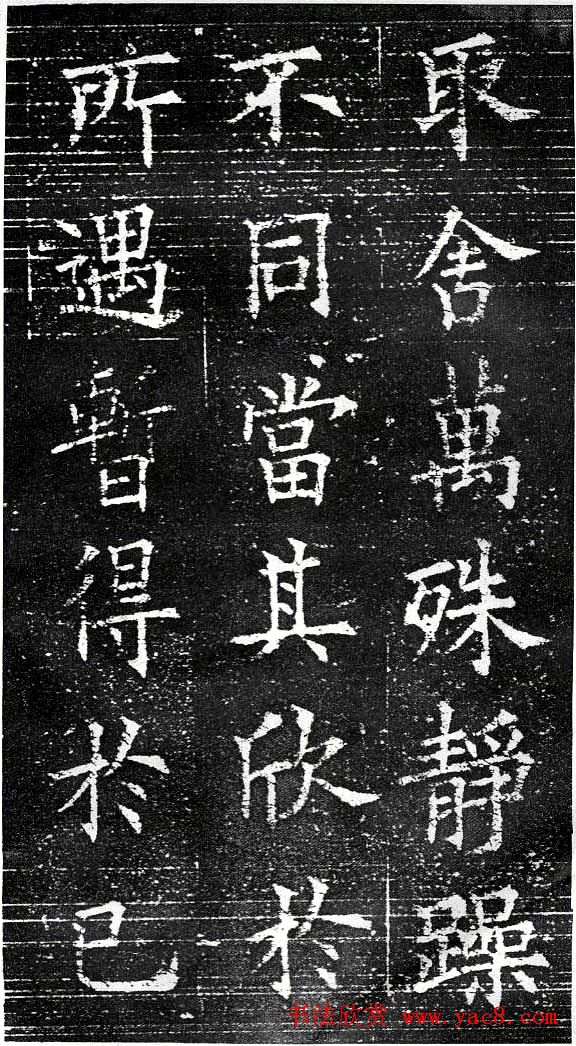 取舍萬殊靜躁
不同當其欣於
所遇暫得於己
书法欣赏 www.yac8.com